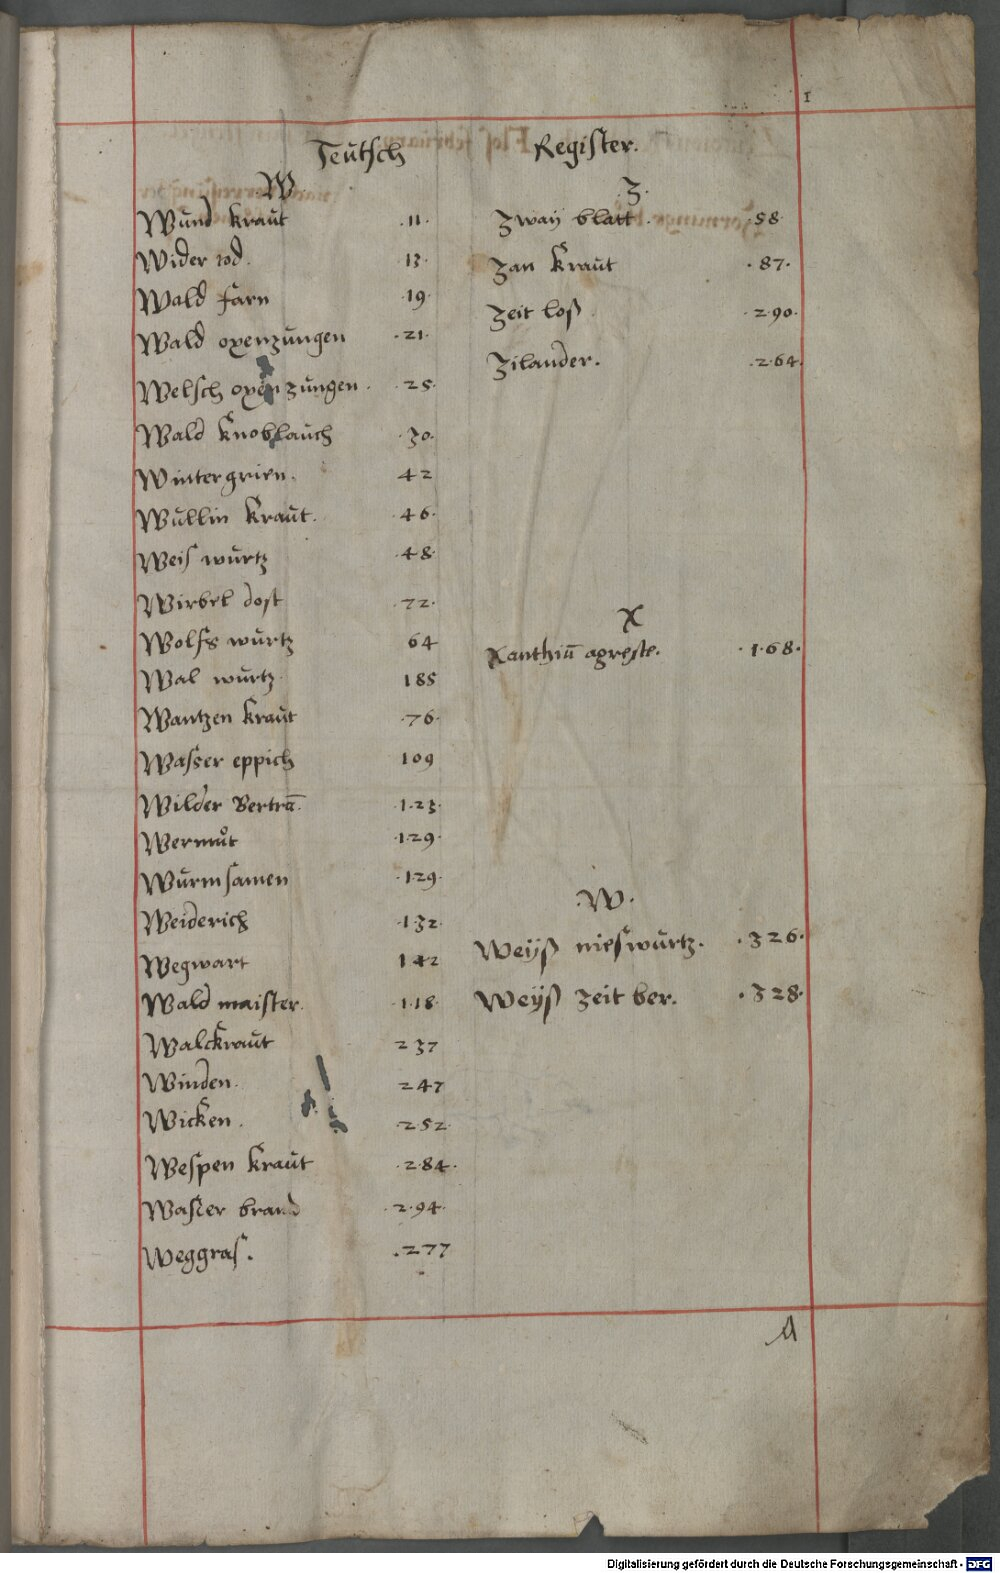 1
Teutsch Register.
W
Wund kraut .11.
Wider tod. 13.
Wald farn .19.
Wald oxenzungen .21.
Welsch oxenzungen. .25.
Wald knoblauch .30.
Wintergrien. 42
Wullin kraut. .46.
Weis wurtz .48.
Wirbel dost .72.
Wolfs wurtz 64
Wal wurtz. 185
Wantzen kraut .76.
Wasser eppich 109
Wilder Bertrā. .123.
Wermůt .129.
Wurmsamen .129.
Weiderich .132.
Wegwart 142
Wald maister. .118.
Walckraut 237
Winden. 247
Wicken. .252.
Wespen kraut .284.
Wasser brand .294.
Weggras. .277
Z.
Zway blatt. .58.
Zan kraut .87.
Zeit loß. .290.
Zilander. .264.
X
Xanthiū agreste. .168.
.W.
Weyß nieswurtz. .326.
Weyß zeit ber. .328.
A
Digitalisierung gefördert durch die Deutsche Forschungsgemeinschaft - DFG